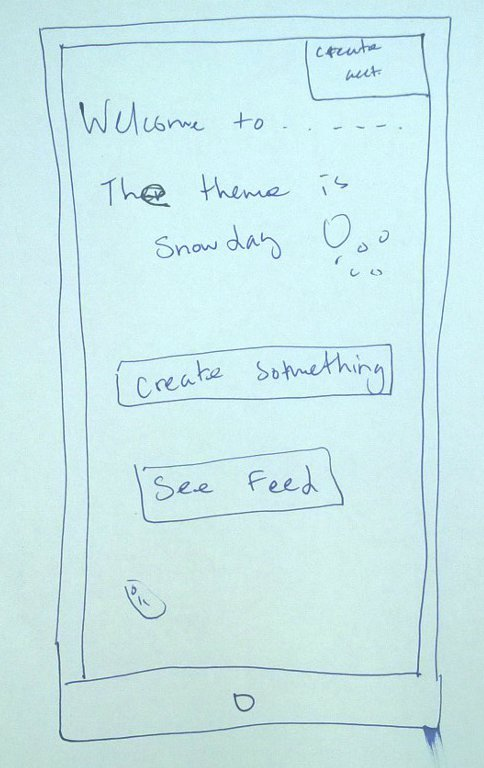 create
acct.
Welcome to . . - - - - .
The theme is
Snowday
Create Sotmething
See Feed